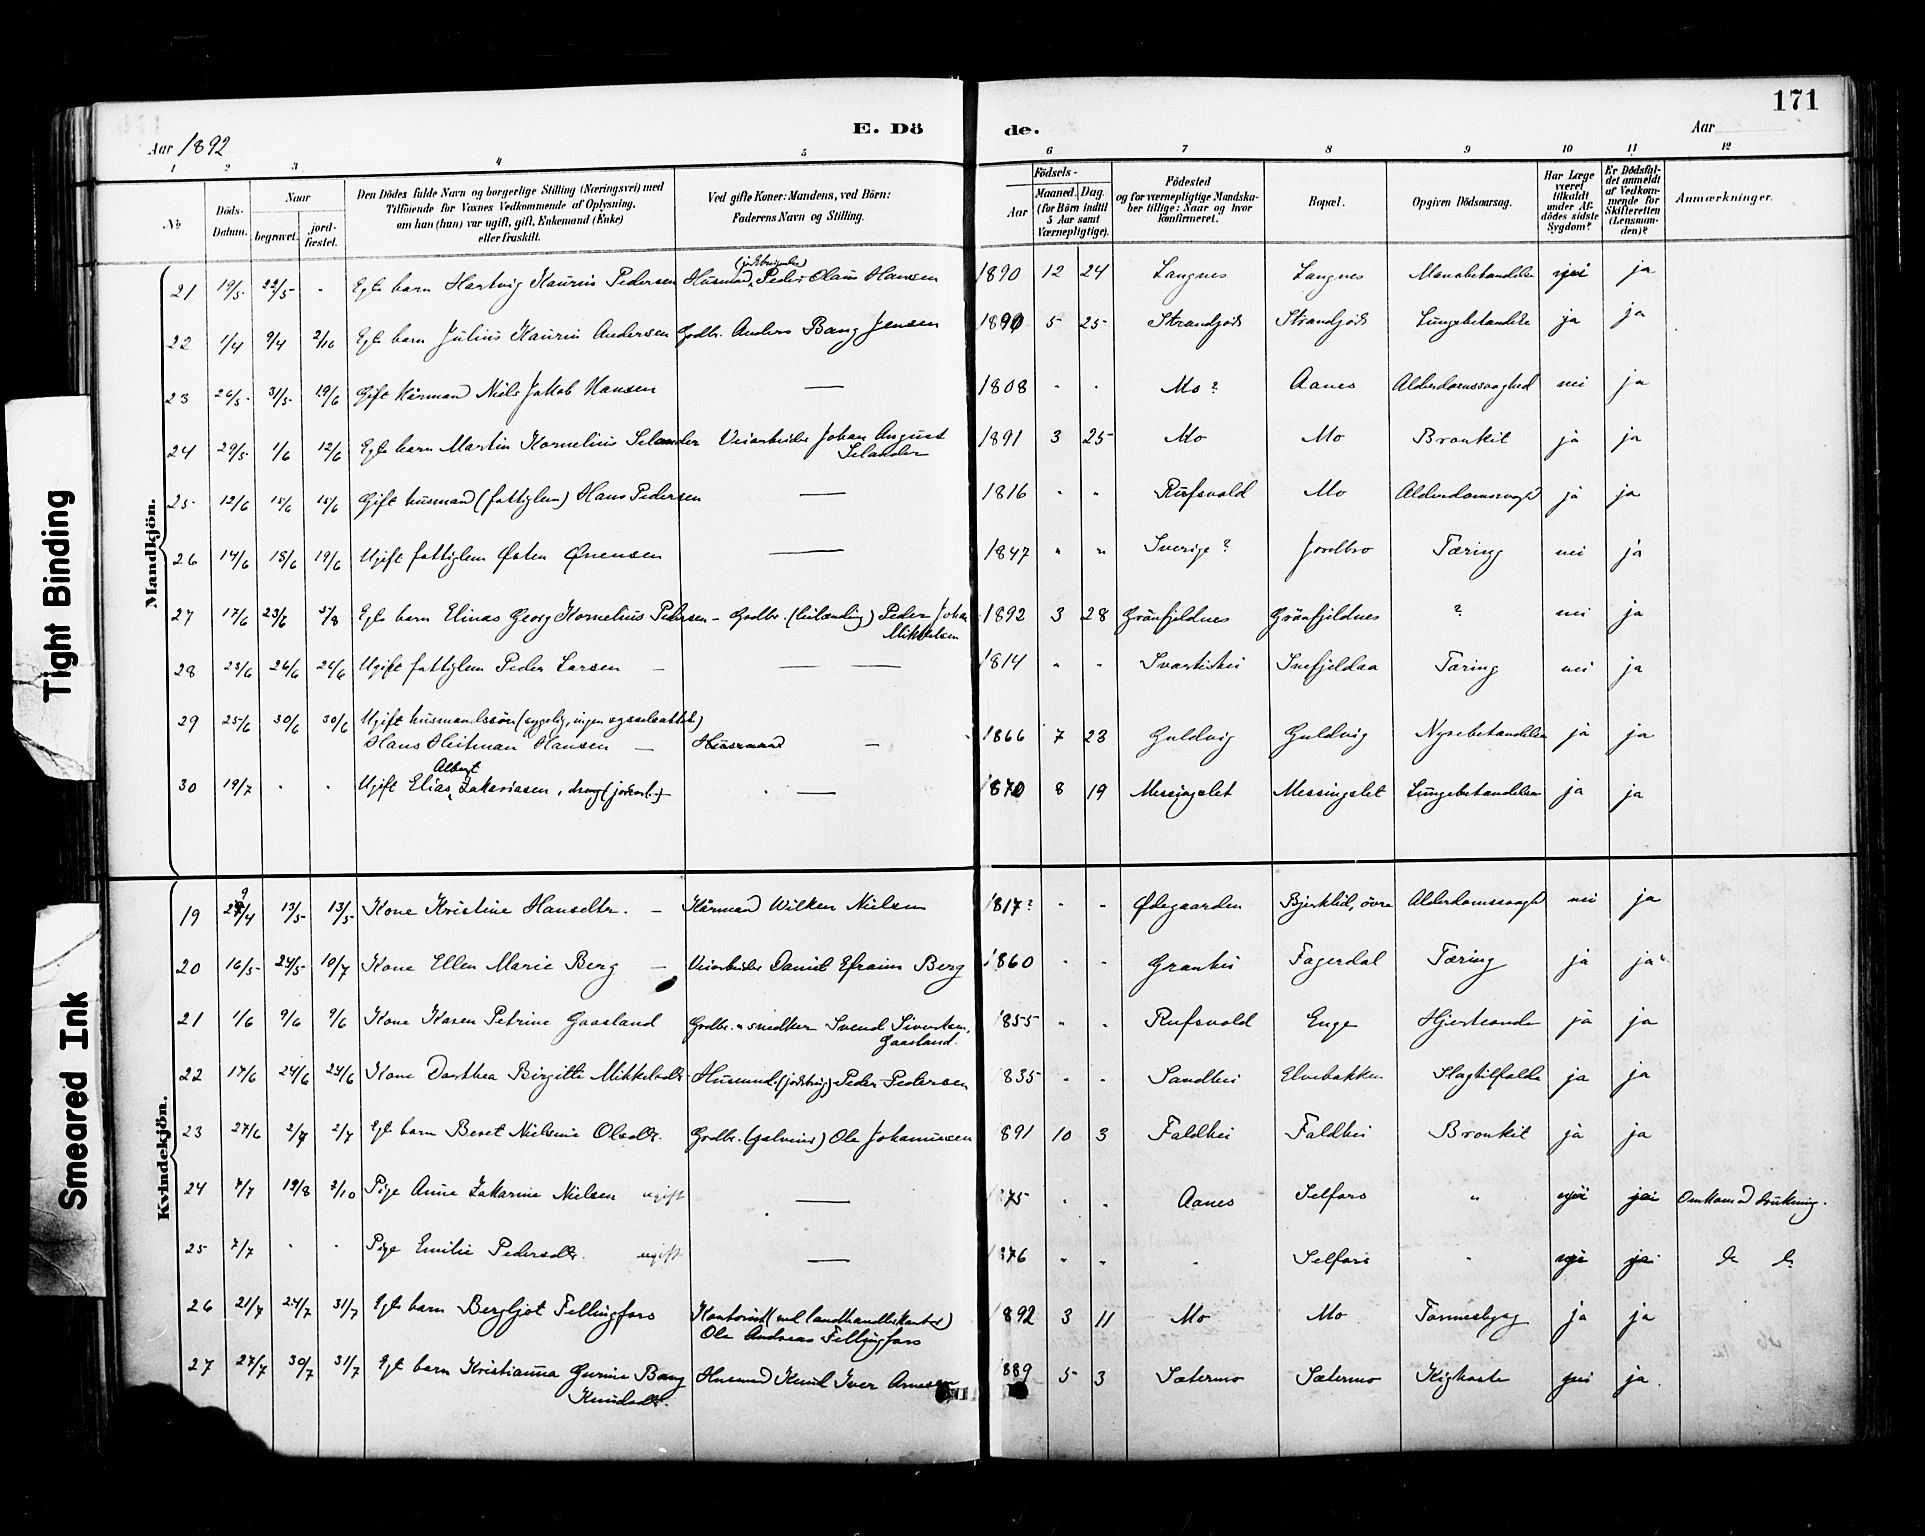 171
E. Dö
de.
Aar 1892
Aar
1 2 3 4 5 6 7 8 9 10 11 12
No
Döds-Datum.
Naar
begravet.
jord-fæstet.
Den Dödes fulde Navn og borgerlige Stilling (Næringsvei) med
Tilföiende for Voxnes Vedkommende af Oplysning,
om han (hun) var ugift, gift, Enkemand (Enke)
eller fraskilt.
Ved gifte Koner: Mandens, ved Börn:
Faderens Navn og Stilling.
Födsels-
Aar
Maaned. Dag.
(for Börn indtil
5 Aar samt
Værnepligtige).
Födested
og for værnepligtige Mandska-
ber tillige: Naar og hvor
konfirmeret.
Bopæl.
Opgiven Dödsaarsag.
Har Læge
været
tilkaldt
under Af-
dödes sidste
Sygdom?
Er Dödsfal-
det anmeldt
af Vedkom-
mende for
Skifteretten
(Lensman-
den)?
Anmærkninger.
Mandkjön.
21 19/5 22/5 - Egte barn Hartvig Kaurin Pedersen Husmand Peder Olaus Hansen 1890 12 24 Langnes Langnes ja
22 1/4 9/4 2/10 Egte barn Julius Kaurin Andersen Grdbr. Anders Bang Jensen 1890 5 25 Strandjord Strandjord Lungebetændelse ja ja
23 26/5 31/5 19/6 Gift Kårmand Niels Jakob Hansen — 1808 - - Mo? Aanes Alderdomssvaghed nei ja
24 29/5 1/6 12/6 Egte barn Martin Kornelius Selander Veiarbeider Johan August 1891 3 25 Mo Mo Bronkit ja ja
Selander
25 12/6 15/6 15/6 Gift husmand (fattiglem) Hans Pedersen — 1816 " " Rufsvold Mo Alderdomssvaghd ja ja
26 14/6 18/6 19/6 Ugift fattiglem Østen Ørensen — 1847 " " Sverige? Jordbro Tæring nei ja
27 17/6 23/6 5/8 Egte barn Elinas Georg Kornelius Pedersen - Grdbr. (leilænding) Peder Johan 1892 3 28 Grönfjeldnes Grönfjeldnes ? nei ja
Mikkelsen
28 23/6 26/6 26/6 Ugift fattiglem Peder Larsen — — — 1814 " " Svartishei Svefjeldaa Tæring nei ja
29 25/6 30/6 30/6 Ugift husmandssön (sygelig, ingen sysselsættelse)
Hans Heitman Hansen — Husmand — 1866 7 23 Guldvig Guldvig Nyrebetændelse ja ja
Albert
30 19/7 - - Ugift Elias Zakariasen, dreng (jordarb.) — 1870 8 19 Messingslet Messingslet Lungebetændelse ja ja
Kvindekjön.
19 29/4 13/5 13/5 Kone Kristine Hansdtr. — Kårmand Wilken Nielsen 1817? - - Ødegaarden Bjerklid, övre Alderdomssvagh nei ja
20 16/5 24/5 10/7 Kone Ellen Marie Berg — Veiarbeider Daniel Efraim Berg 1860 - - Granhei Fagerdal Tæring ja ja
21 1/6 9/6 9/6 Kone Karen Petrine Gaasland Grdbr. & snedker Svend Sivertsen 1855 " - Rufsvold Enge Hjerteonde ja ja
Gaasland.
22 17/6 24/6 24/6 Kone Dorthea Birgitte Mikkelsdtr. Husmand (jordbrug) Peder Pedersen 1835 - - Sandhei Elvebakken Slagtilfælde ja ja
23 27/6 2/7 2/7 Egte barn Beret Nielsine Olsdtr. Grdbr. (selveier) Ole Johannesen 1891 10 3 Faldhei Faldhei Bronkit ja ja
24 7/7 19/8 2/10 Pige Anne Zakarine Nielsen ugift — 1875 - - Aanes Selfors " nei ja Omkom ved drukning.
25 7/7 - - Pige Emilie Pedersdtr. ugift — 1876 - - - Selfors - nei ja do do
26 21/7 24/7 31/7 Egte barn Bergljot Fellingfors Kontorist (ved landhandlerkontor) 1892 3 11 Mo Mo ja ja
Ole Andreas Fellingfors
27 27/7 30/7 31/7 Egte barn Kristianna Gurine Bang Husmand Knud Iver Arnesen 1889 5 3 Sætermo Sætermo Kighoste nei ja
Knudsdtr.
Tight Binding
Smeared Ink